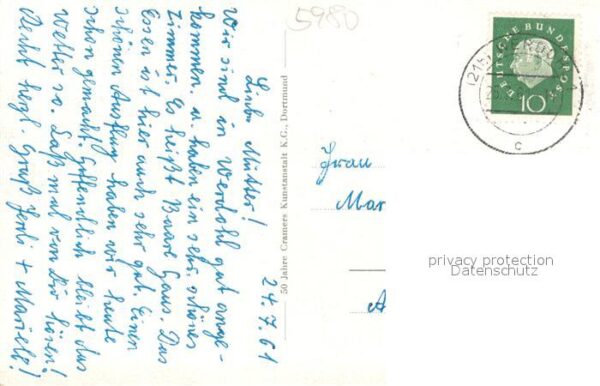 24.7.61
Liebe Mutter!
Wir sind in Werdohl gut ange-
kommen. u. haben ein sehr schönes
Zimmer. Es heißt Baure Haus. Das
Essen ist hier auch sehr gut. Einen
schönen Ausflug haben wir heute
schon gemacht. Hoffendlich bleibt das
Wetter so. Laß mal von Dir hören!
Recht herzl. Gruß + Mariele!
50 Jahre Cramers Kunstanstalt K.G., Dortmund
5980
DEUTSCHE BUNDESPOST
10
(21b) WERDO
c
Frau
Mar
A
privacy protection
Datenschutz